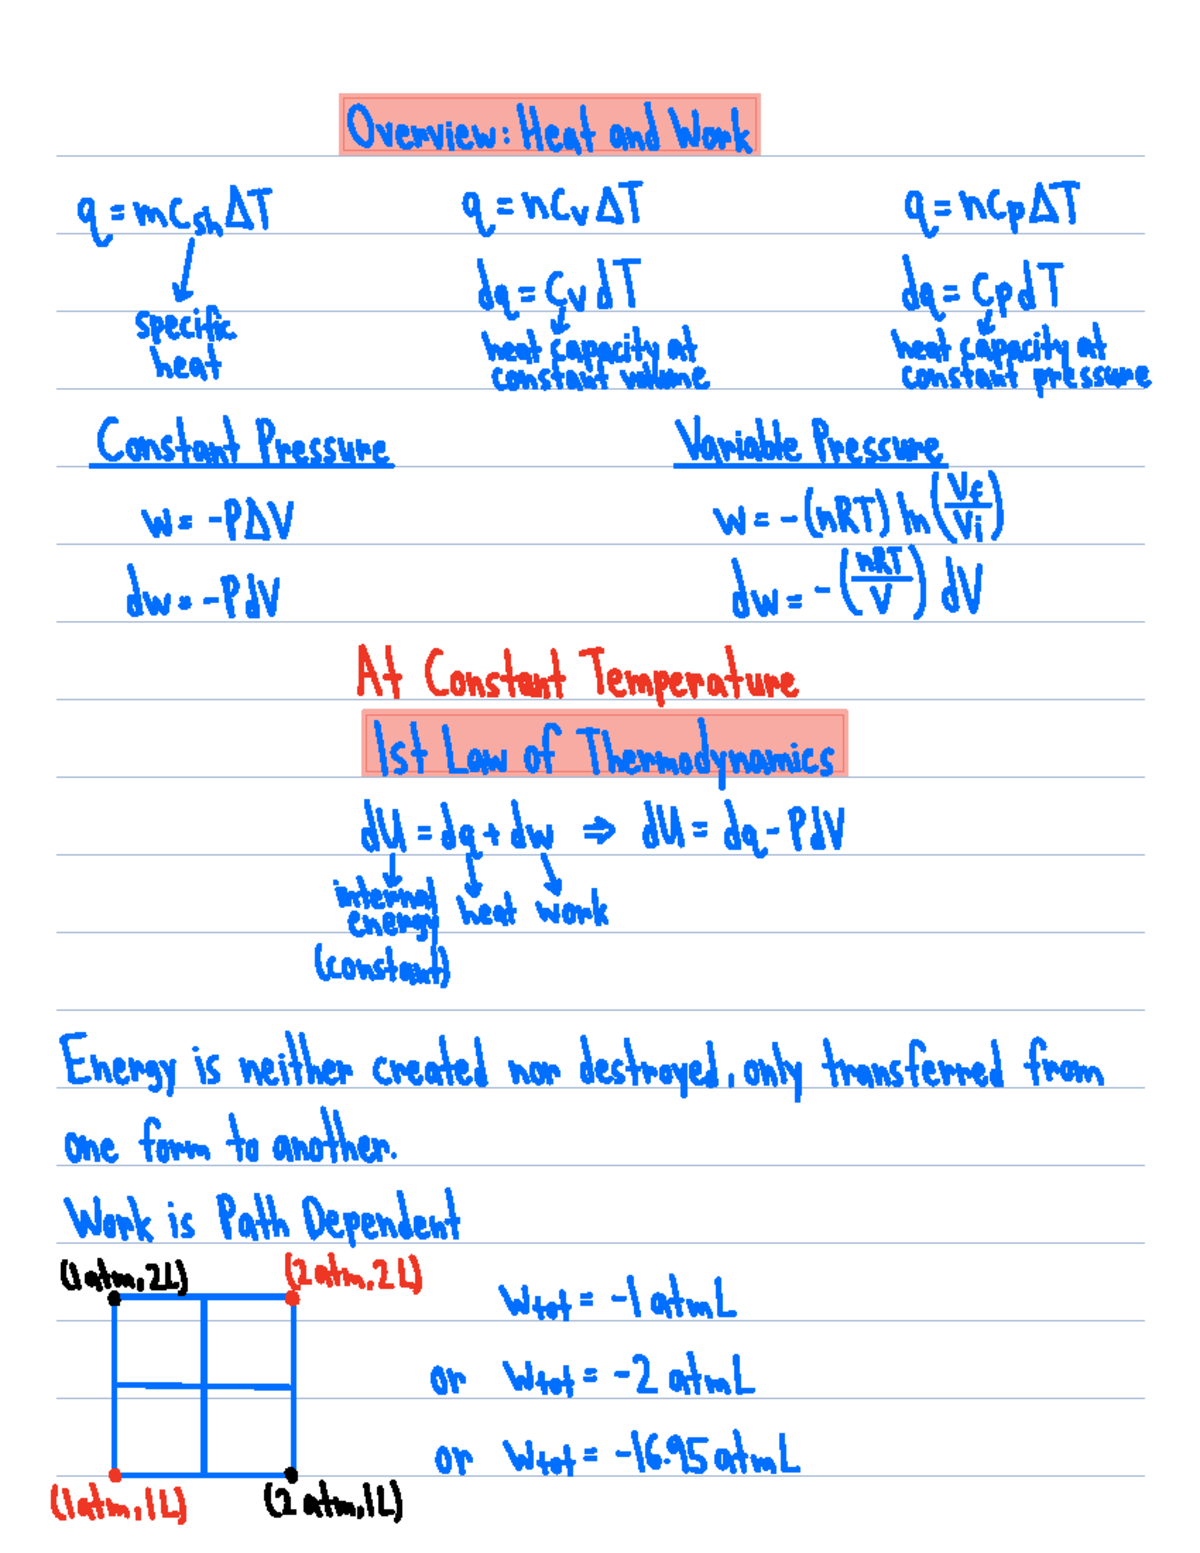 Overview: Heat and Work
q = mc_sh ΔT q = nC_v ΔT q = nC_p ΔT
dq = C_v dT dq = C_p dT
specific heat
heat capacity at constant volume
heat capacity at constant pressure
Constant Pressure Variable Pressure
w = -PΔV w = -(nRT) ln(V_f/V_i)
dw = -PdV dw = -(nRT/V) dV
At Constant Temperature
1st Law of Thermodynamics
dU = dq + dw ⇒ dU = dq - PdV
internal energy (constant) heat work
Energy is neither created nor destroyed, only transferred from
one form to another.
Work is Path Dependent
(1atm, 2L) (2atm, 2L)
w_tot = -1 atmL
or w_tot = -2 atmL
or w_tot = -16.95 atmL
(1atm, 1L) (2atm, 1L)